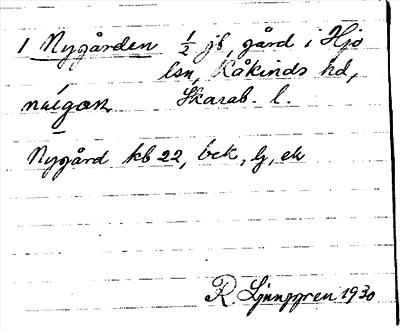 1 Nygården ½ jb, gård i Hjo
lsn, Kåkinds hd,
Skarab. l.
Nygård kb 22, bek, lj, ek
R. Ljunggren 1930